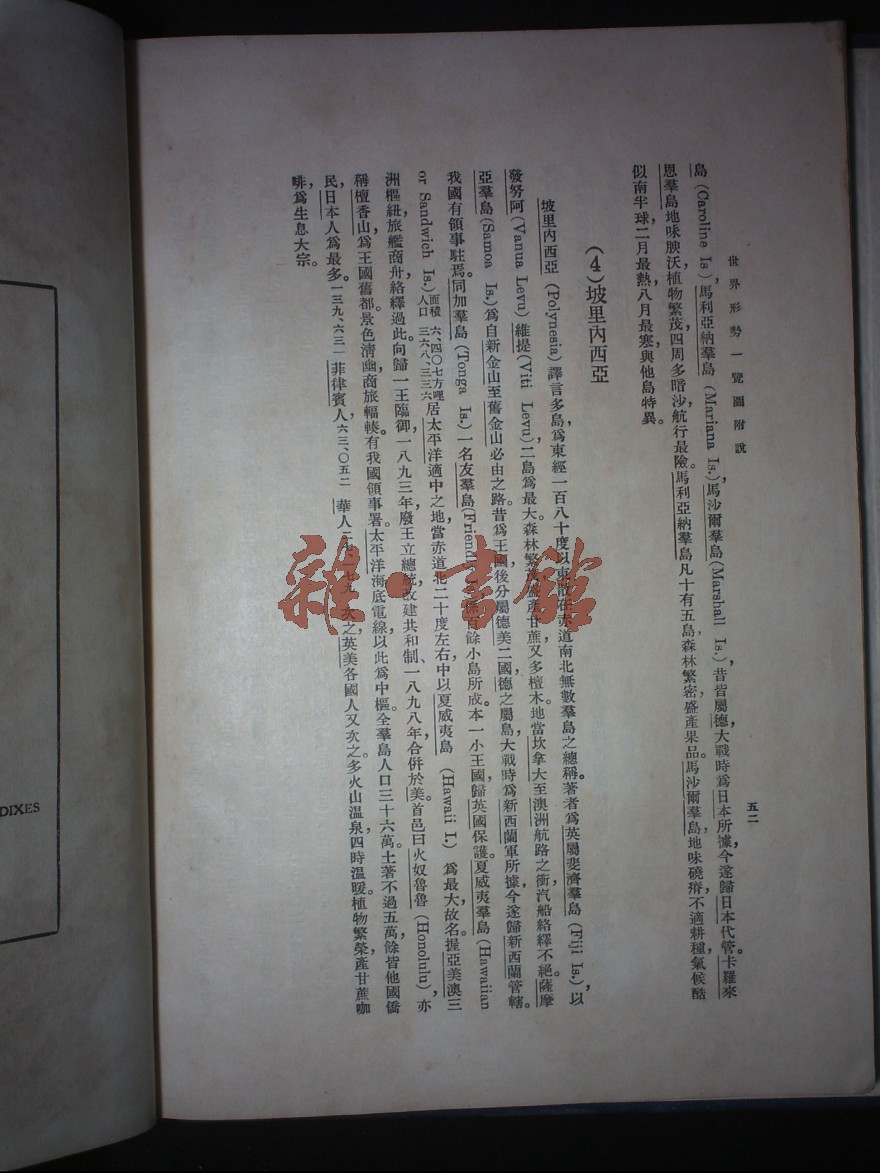 世界形勢一覽圖附說
五二
島 (Caroline Is.) 馬利亞納羣島 (Mariana Is.), 馬沙爾羣島 (Marshall Is.), 昔皆屬德，大戰時爲日本所據，今遂歸日本代管。卡羅來
恩羣島地味腴沃，植物繁茂，四周多暗沙，航行最險。馬利亞納羣島凡十有五島，森林繁密，盛產果品。馬沙爾羣島地味磽瘠，不適耕種，氣候酷
似南半球，二月最熱，八月最寒，與他島特異。
(4)坡里內西亞
坡里內西亞 (Polynesia) 譯言多島，爲東經一百八十度以東散在赤道南北無數羣島之總稱。著者爲英屬斐濟羣島 (Fiji Is.), 以
發努阿 (Vanua Levu) 維提 (Viti Levu) 二島爲最大。森林繁茂，盛產甘蔗，又多檀木，地當坎拿大至澳洲航路之衝，汽船絡繹不絕。薩摩
亞羣島 (Samoa Is.) 爲自新金山至舊金山必由之路。昔爲王國，後分屬德美二國，德之屬島，大戰時爲新西蘭軍所據，今遂歸新西蘭管轄。
我國有領事駐焉。同加羣島 (Tonga Is.) 一名友羣島 (Friendly 係百餘小島所成。本一小王國，歸英國保護。夏威夷羣島 (Hawaiian
or Sandwich Is.) 面積 六、四〇七方哩 人口 三六八、三三六 居太平洋適中之地，當赤道北二十度左右，中以夏威夷島 (Hawaii I.) 爲最大，故名。握亞美澳三
洲樞紐，旅艦商舟絡繹過此。向歸一王臨御，一八九三年，廢王立總統，改建共和制、一八九八年，合併於美。首邑曰火奴魯魯 (Honolulu), 亦
稱檀香山，爲王國舊都，景色清幽，商旅輻輳。有我國領事署。太平洋海底電線以此爲中樞。全羣島人口三十六萬。土著不過五萬餘，皆他國僑
民，日本人爲最多。一三九、六三一 菲律賓人，六三、〇五二 華人 二七、一七九 次之，英美各國人又次之。多火山溫泉，四時溫暖。植物繁榮，產甘蔗咖
啡，爲生息大宗。
雜·書館
DIXES